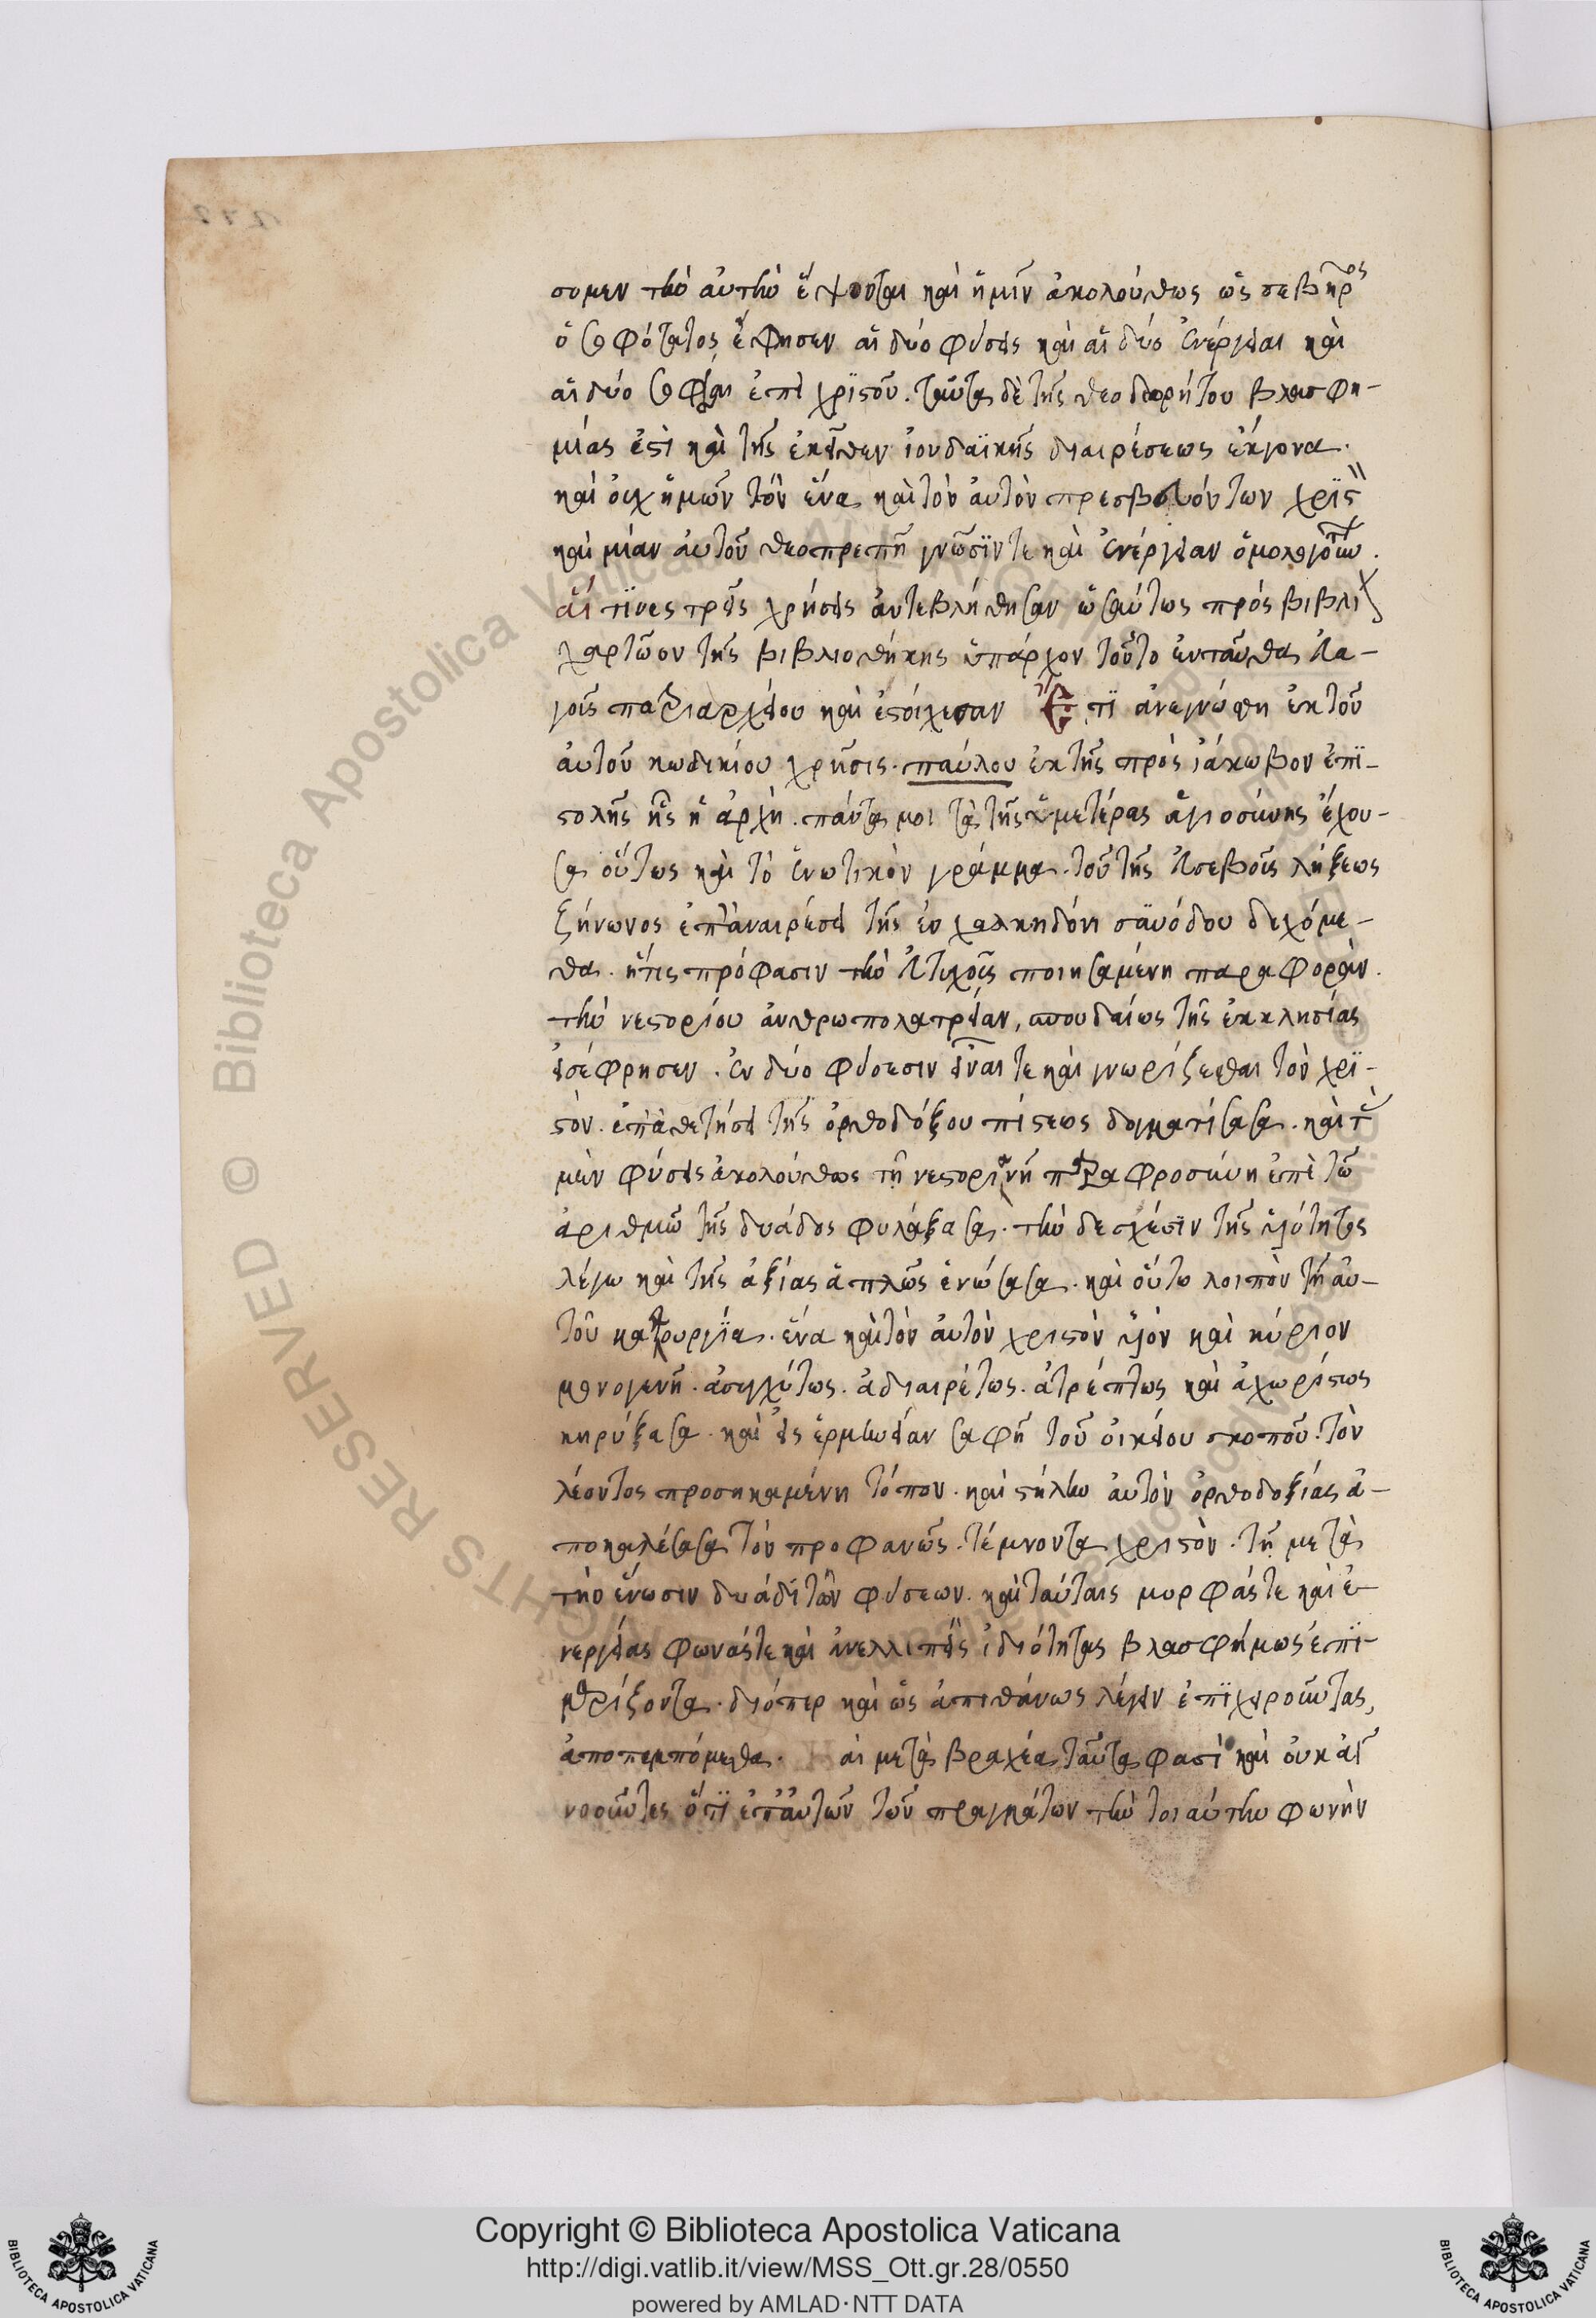 σομεν τὴν αὐτὴν ἕψονται καὶ ἡμῖν ἀκολούθως ὡς σεβῆρος
ὁ σοφώτατος ἔφησεν αἱ δύο φύσεις καὶ αἱ δύο ἐνέργειαι καὶ
αἱ δύο σοφίαι ἐπὶ χριστοῦ. ταῦτα δὲ τῆς θεοδωρήτου βλασφη-
μίας ἐστὶ καὶ τῆς ἐκεῖθεν ἰουδαϊκῆς διαιρέσεως ἔκγονα.
καὶ οὐχ ἡμῶν τὸν ἕνα καὶ τὸν αὐτὸν πρεσβευόντων χριστ
καὶ μίαν αὐτοῦ θεοπρεπῆ γνῶσίν τε καὶ ἐνέργειαν ὁμολογούντων.
αἵ τινες τρεῖς χρήσεις ἀντεβλήθησαν ὡσαύτως πρὸς βιβλί
χαρτῶον τῆς βιβλιοθήκης ὑπάρχον τοῦ ἐνταῦθα εὐα-
γοῦς πατριαρχείου καὶ ἐστοίχησαν Ἔτι ἀνεγνώσθη ἐκ τοῦ
αὐτοῦ κωδικίου χρῆσις. παύλου ἐκ τῆς πρὸς ἰάκωβον ἐπι-
στολῆς ἧς ἡ ἀρχὴ. πάντα μοι τὰ τῆς ὑμετέρας ἁγιοσύνης ἔχου-
σα οὕτως καὶ τὸ ἑνωτικὸν γράμμα. τοῦ τῆς εὐσεβοῦς λήξεως
ζήνωνος ἐπ' ἀναιρέσει τῆς ἐν χαλκηδόνι συνόδου δεχόμε-
θα. ἥτις πρόφασιν τὴν εὐτυχοῦς ποιησαμένη παραφορὰν.
τὴν νεστορίου ἀνθρωπολατρείαν, σπουδαίως τῆς ἐκκλησίας
εἰσέφρησεν. ἐν δύο φύσεσιν εἶναι τε καὶ γνωρίζεσθαι τὸν χρι-
στόν. ἐπ' ἀθετήσει τῆς ὀρθοδόξου πίστεως δογματίσασα. καὶ τὰς
μὲν φύσεις ἀκολούθως τῇ νεστοριανῇ παραφροσύνη ἐπὶ τῶ
ἀριθμῶ τῆς δυάδος φυλάξασα. τὴν δε σχέσιν τῆς υἱότητος
λέγω καὶ τῆς ἀξίας ἁπλῶς ἑνώσασα. καὶ οὕτω λοιπὸν τῇ αὐ-
τοῦ κατουργία. ἕνα καὶ τὸν αὐτὸν χριστὸν υἱὸν καὶ κύριον
μονογενῆ. ἀσυγχύτως. ἀδιαιρέτως. ἀτρέπτως καὶ ἀχωρίστως
κηρύξασα. καὶ εἰς ἑρμηνείαν σαφῆ τοῦ οἰκείου σκοποῦ. τὸν
λέοντος προσηκαμένη τόπον. καὶ στήλην αὐτὸν ὀρθοδοξίας ἀ-
ποκαλέσασα τὸν προφανῶς. τέμνοντα χριστὸν. τῇ μετὰ
τὴν ἕνωσιν δυάδι τῶν φύσεων. καὶ ταύταις μορφάς τε καὶ ἐ-
νεργείας φωνάς τε καὶ ἀνελλιπεῖς ἰδιότητας βλασφήμως ἐπι-
μερίζοντα. διόπερ καὶ ὡς ἀπιθάνως λέγειν ἐπιχειροῦντας,
ἀποπεμπόμεθα. αἱ μετὰ βραχέα ταῦτα φασὶ καὶ οὐκ
νοοῦντες ὅτι ἐπ' αὐτῶν τῶν πραγμάτων τὴν τοιαύτην φωνὴν
Copyright © Biblioteca Apostolica Vaticana
http://digi.vatlib.it/view/MSS_Ott.gr.28/0550
powered by AMLAD·NTT DATA